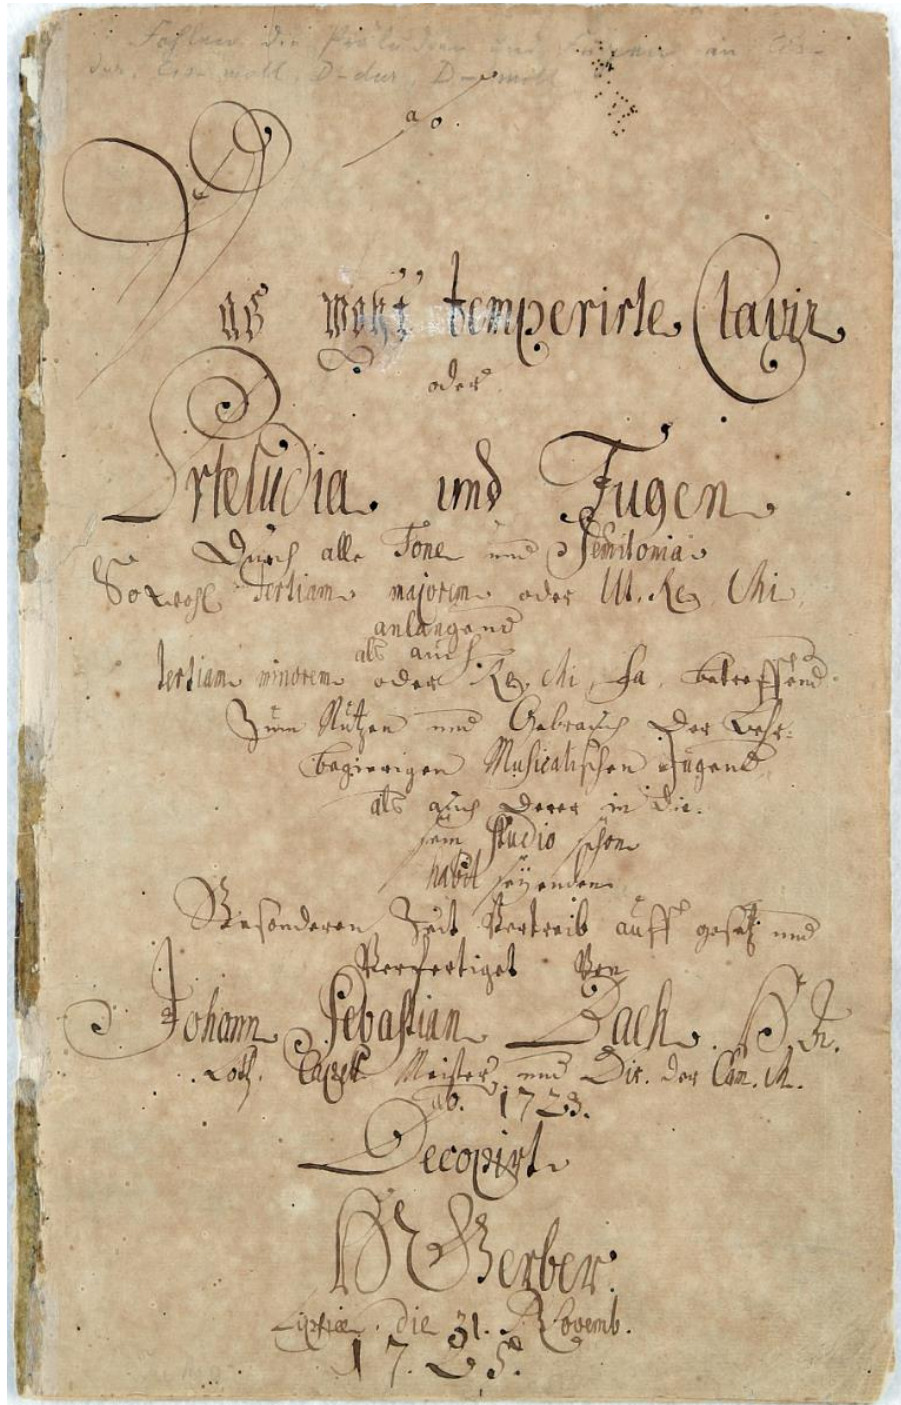 Fehlen die Präludien und Fugen in Cis-
dur, Cis-moll, D-dur, D-moll
ao.
Das wohl temperirte Clavir
oder
Præludia und Fugen
Durch alle Tone und Semitonia
So wohl tertiam majorem oder Ut. Re Mi
anlangend
als auch
tertiam minorem oder Re. Mi Fa. betreffend
Zum Nutzen und Gebrauch der Lehr-
begierigen Musicalischen Jugend
als auch derer in die-
sem studio schon
habil seyenden
Besonderen Zeit Vertreib auffgesetzt und
Verfertiget Von
Johann Sebastian Bach. H. A.
Coth. Capell Meister und Dir. der Cam. M.
ao. 1723.
Decopirt
HNGerber.
Lipsiæ. die 31. Novemb.
1725.